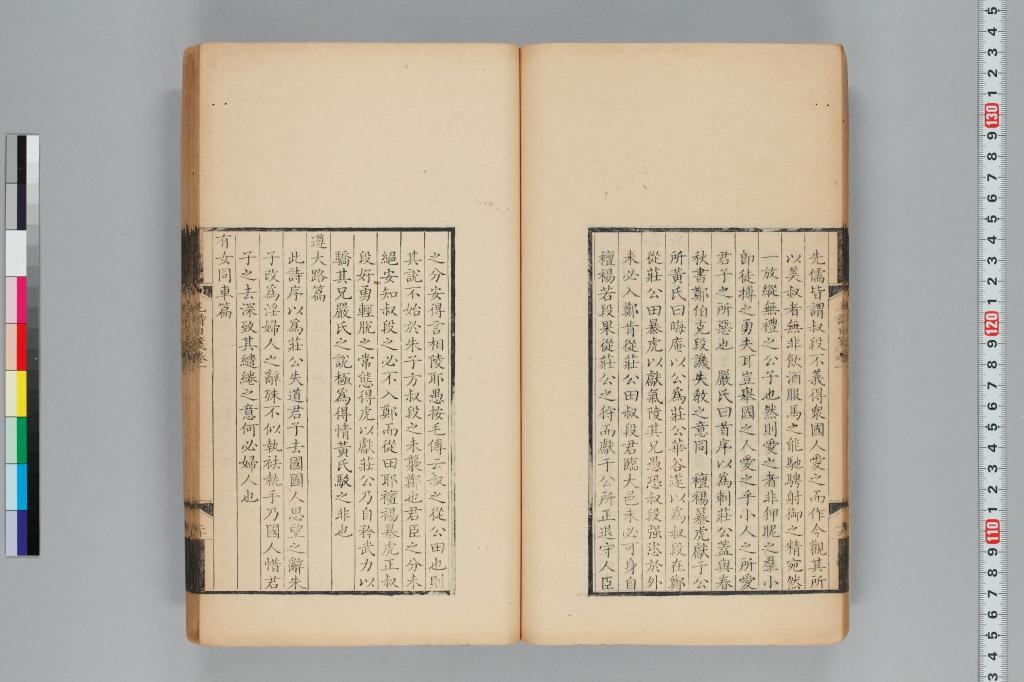 先儒皆謂叔段不義得衆國人愛之而作今觀其所
以美叔者無非飲酒服馬之能馳騁射御之精宛然
一放縱無禮之公子也然則愛之者非狎昵之羣小
卽徒搏之勇夫耳豈舉國之人愛之乎小人之所愛
君子之所惡也 嚴氏曰首序以為刺莊公蓋與春
秋書鄭伯克段譏失教之意同 襢裼暴虎獻于公
所黃氏曰晦庵以公為莊公華谷遂以為叔段在鄭
從莊公田暴虎以獻氣陵其兄愚恐叔段强恣於外
未必入鄭肯從莊公田叔段君臨大邑未必可身自
襢裼若段果從莊公之狩而獻于公所正退守人臣
之分安得言相陵耶愚按毛傳云叔之從公田也則
其說不始於朱子方叔段之未襲鄭也君臣之分未
絕安知叔段之必不入鄭而從田耶襢裼暴虎正叔
段好勇輕脫之常態得虎以獻莊公乃自矜武力以
驕其兄嚴氏之說極為得情黃氏駁之非也
遵大路篇
此詩序以為莊公失道君子去國國人思望之辭朱
子改為淫婦人之辭殊不似執袪執手乃國人惜君
子之去深致其繾綣之意何必婦人也
有女同車篇